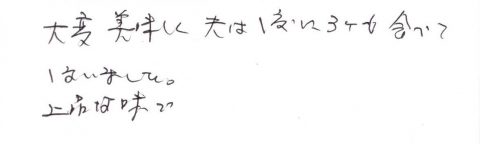 大変美味しく 夫は1度に3ヶも食べて
しまいました。
上品な味で